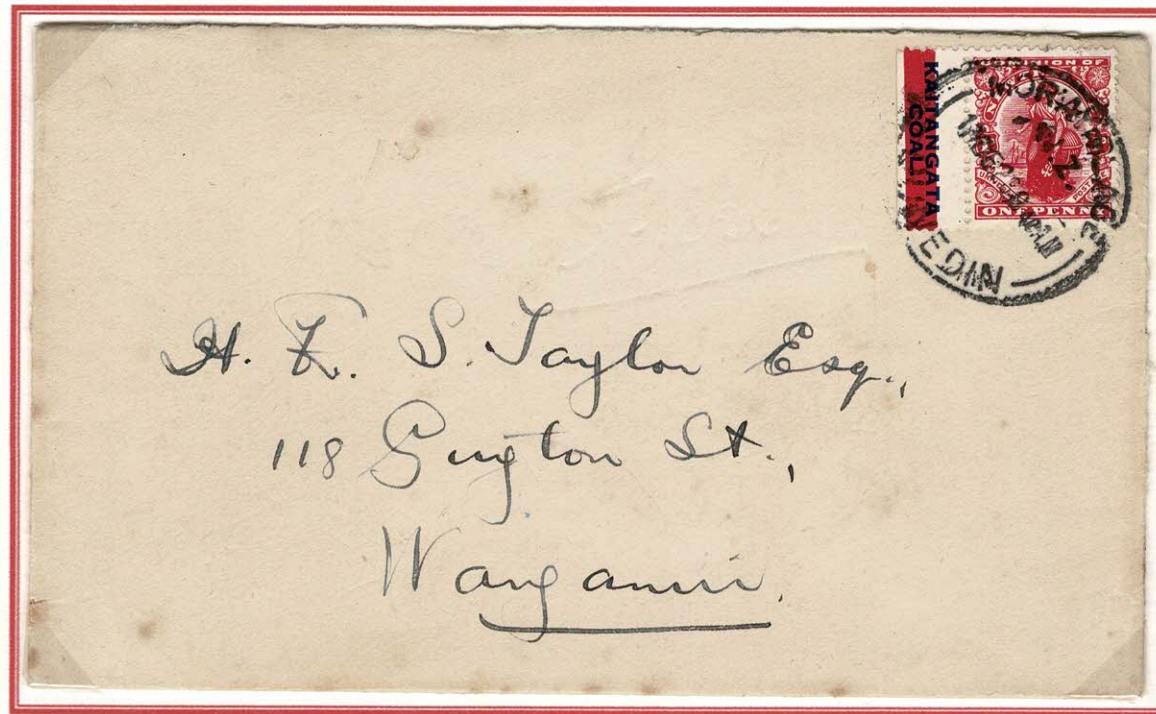 KAITANGATA
COAL
DOMINION OF
ONE PENNY
MORNINGTON
N.Z.
DUNEDIN
H. E. S. Taylor Esq.,
118 Guyton St.,
Wanganui.